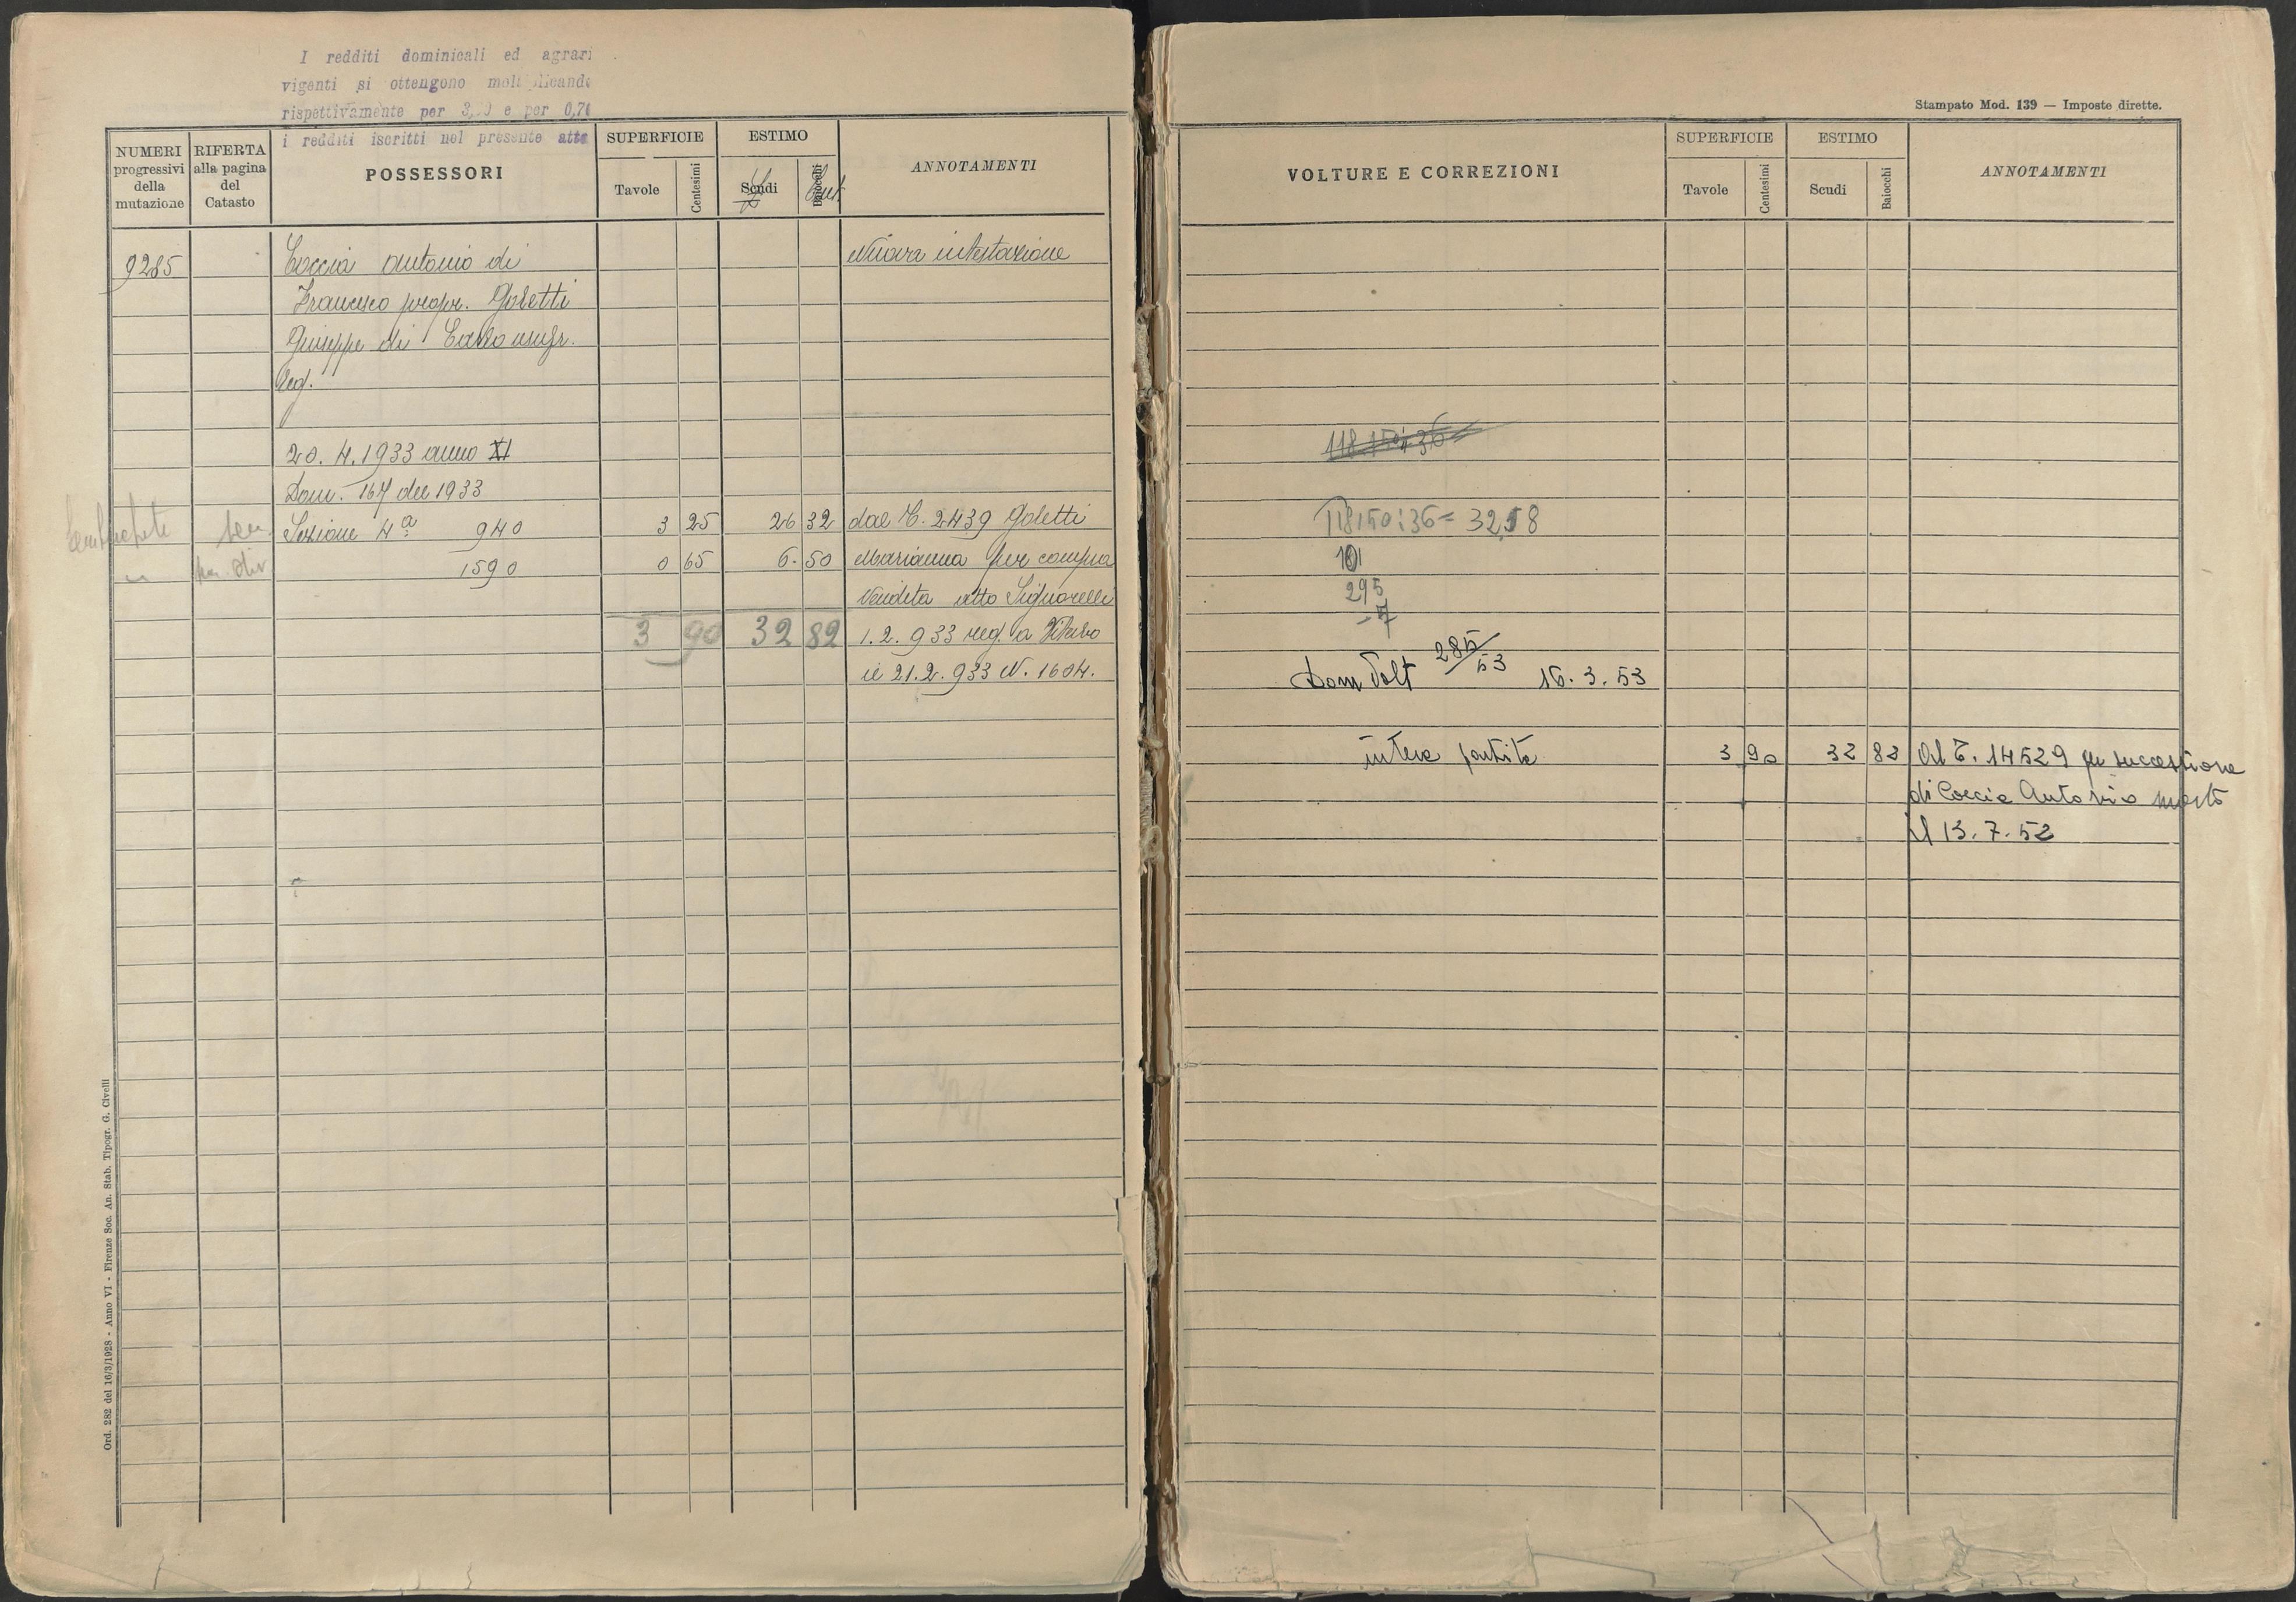 I redditi dominicali ed agrari
vigenti si ottengono moltiplicando
rispettivamente per e per 0,70
i redditi iscritti nel presente atto
NUMERI progressivi della mutazione
RIFERTA alla pagina del Catasto
POSSESSORI
SUPERFICIE
Tavole
Centesimi
ESTIMO
Scudi
Baiocchi
ANNOTAMENTI
9285 Coccia Antonio di Nuova intestazione
Francesco propr. Goletti
Giuseppe di Carlo usufr.
20.4.1933 anno XI
Dom. 164 del 1933
Sezione 4ª 940 3 25 26 32 dal C. 2439 Goletti
1590 0 65 6.50 Marianna per compra
Vendita atto Signorelli
3 90 32 82 1.2.933 reg. a Viterbo
il 21.2.933 N. 1604.
Ord. 282 del 16/3/1928 - Anno VI - Firenze Soc. An. Stab. Tipogr. G. Civelli
Stampato Mod. 139 — Imposte dirette.
VOLTURE E CORREZIONI
SUPERFICIE
Tavole
Centesimi
ESTIMO
Scudi
Baiocchi
ANNOTAMENTI
118150:36= 32,58
101
295
-7
Dom Volt 285/53 16.3.53
intera partita 3 90 32 82 Al C. 14529 per successione
di Coccia Antonio morto
il 13.7.52